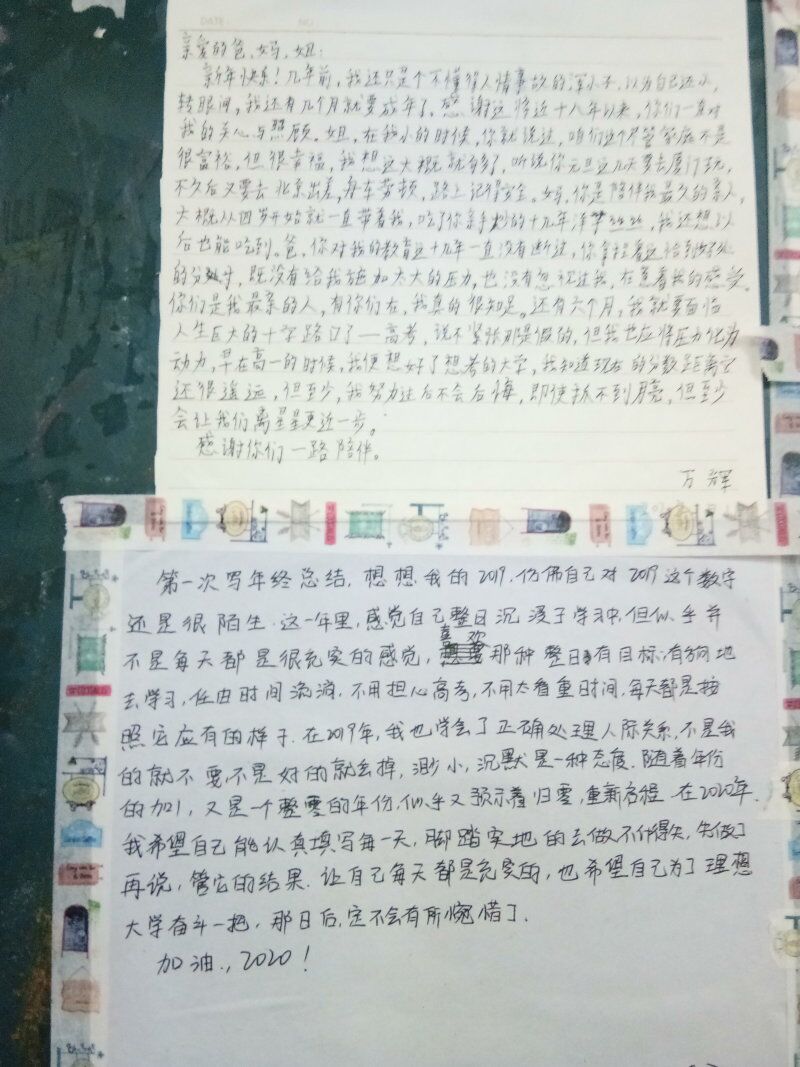 DATE: NO:
亲爱的爸、妈、姐:
新年快乐!几年前,我还只是个不懂得人情事故的浑小子,以为自己还小,
转眼间,我还有几个月就要成年了。感谢这将近十八年以来,你们一直对
我的关心与照顾。姐,在我小的时候,你就说过,咱们这个尽管家庭不是
很富裕,但很幸福,我想这大概就够了,听说你元旦这几天要去厦门玩,
不久后又要去北京出差,舟车劳顿,路上记得安全。妈,你是陪伴我最久的亲人,
大概从四岁开始就一直带着我,吃了你亲手炒的十九年洋芋丝丝,我还想以
后也能吃到。爸,你对我的教育这十九年一直没有断过,你拿捏着这恰到好处
的分寸,既没有给我施加太大的压力,也没有忽视过我,在意着我的感受。
你们是我最亲的人,有你们在,我真的很知足。还有六个月,我就要面临
人生巨大的十字路口了——高考,说不紧张那是假的,但我也应将压力化为
动力,早在高一的时候,我便想好了想考的大学,我知道现在的分数距离它
还很遥远,但至少,我努力过后不会后悔,即使抓不到月亮,但至少
会让我们离星星更近一步。
感谢你们一路陪伴。
万辉
第一次写年终总结,想想我的2019,仿佛自己对2019这个数字
还是很陌生.这一年里,感觉自己整日沉浸于学习中,但似乎并
不是每天都是很充实的感觉,喜欢那种整日有目标,有方向地
去学习,任由时间流淌,不用担心高考,不用太看重时间,每天都是按
照它应有的样子.在2019年,我也学会了正确处理人际关系,不是我
的就不要,不是好的就丢掉,渺小,沉默是一种态度.随着年份
的加1,又是一个整零的年份,似乎又预示着归零,重新启程.在2020年.
我希望自己能认真填写每一天,脚踏实地的去做,不计得失,先做了
再说,管它的结果.让自己每天都是充实的,也希望自己为了理想
大学奋斗一把,那日后,定不会有所惋惜了.
加油.,2020!